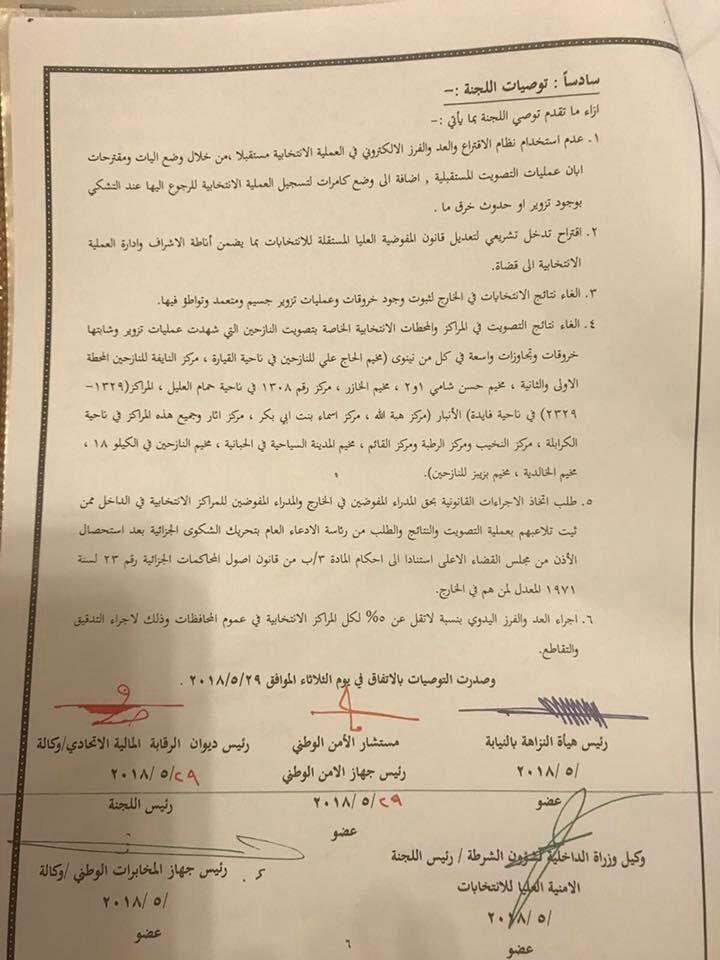 سادساً : توصيات اللجنة :-
ازاء ما تقدم توصي اللجنة بما يأتي :-
١. عدم استخدام نظام الاقتراع والعد والفرز الالكتروني في العملية الانتخابية مستقبلا ،من خلال وضع اليات ومقترحات
ابان عمليات التصويت المستقبلية , اضافة الى وضع كامرات لتسجيل العملية الانتخابية للرجوع اليها عند التشكي
بوجود تزوير او حدوث خرق ما .
٢. اقتراح تدخل تشريعي لتعديل قانون المفوضية العليا المستقلة للانتخابات بما يضمن أناطة الاشراف وادارة العملية
الانتخابية الى قضاة.
٣. الغاء نتائج الانتخابات في الخارج لثبوت وجود خروقات وعمليات تزوير جسيم ومتعمد وتواطؤ فيها.
٤. الغاء نتائج التصويت في المراكز والمحطات الانتخابية الخاصة بتصويت النازحين التي شهدت عمليات تزوير وشابتها
خروقات وتجاوزات واسعة في كل من نينوى (مخيم الحاج علي للنازحين في ناحية القيارة ، مركز النايفة للنازحين المحطة
الاولى والثانية ، مخيم حسن شامي ١و٢ ، مخيم الخازر ، مركز رقم ١٣٠٨ في ناحية حمام العليل ، المراكز(١٣٢٩-
٢٣٢٩) في ناحية فايدة) الأنبار (مركز هبة الله ، مركز اسماء بنت ابي بكر ، مركز اثار وجميع هذه المراكز في ناحية
الكرابلة ، مركز النخيب ومركز الرطبة ومركز القائم ، مخيم المدينة السياحية في الحبانية ، مخيم النازحين في الكيلو ١٨ ،
مخيم الخالدية ، مخيم بزيبز للنازحين).
٥. طلب اتخاذ الاجراءات القانونية بحق المدراء المفوضين في الخارج والمدراء المفوضين للمراكز الانتخابية في الداخل ممن
ثبت تلاعبهم بعملية التصويت والنتائج والطلب من رئاسة الادعاء العام بتحريك الشكوى الجزائية بعد استحصال
الأذن من مجلس القضاء الاعلى استنادا الى احكام المادة ٣/ب من قانون اصول المحاكمات الجزائية رقم ٢٣ لسنة
١٩٧١ المعدل لمن هم في الخارج.
٦. اجراء العد والفرز اليدوي بنسبة لاتقل عن ٥% لكل المراكز الانتخابية في عموم المحافظات وذلك لاجراء التدقيق
والتقاطع.
وصدرت التوصيات بالاتفاق في يوم الثلاثاء الموافق ٢٠١٨/٥/٢٩ .
رئيس هيأة النزاهة بالنيابة
/٢٠١٨/٥
عضو
مستشار الأمن الوطني
رئيس جهاز الامن الوطني
٢٠١٨/٥/٢٩
عضو
رئيس ديوان الرقابة المالية الاتحادي/وكالة
٢٠١٨/٥/٢٩
رئيس اللجنة
وكيل وزراة الداخلية لشؤون الشرطة / رئيس اللجنة
الامنية العليا للانتخابات
/٢٠١٨/٥
عضو
رئيس جهاز المخابرات الوطني /وكالة
/٢٠١٨/٥
عضو
٦